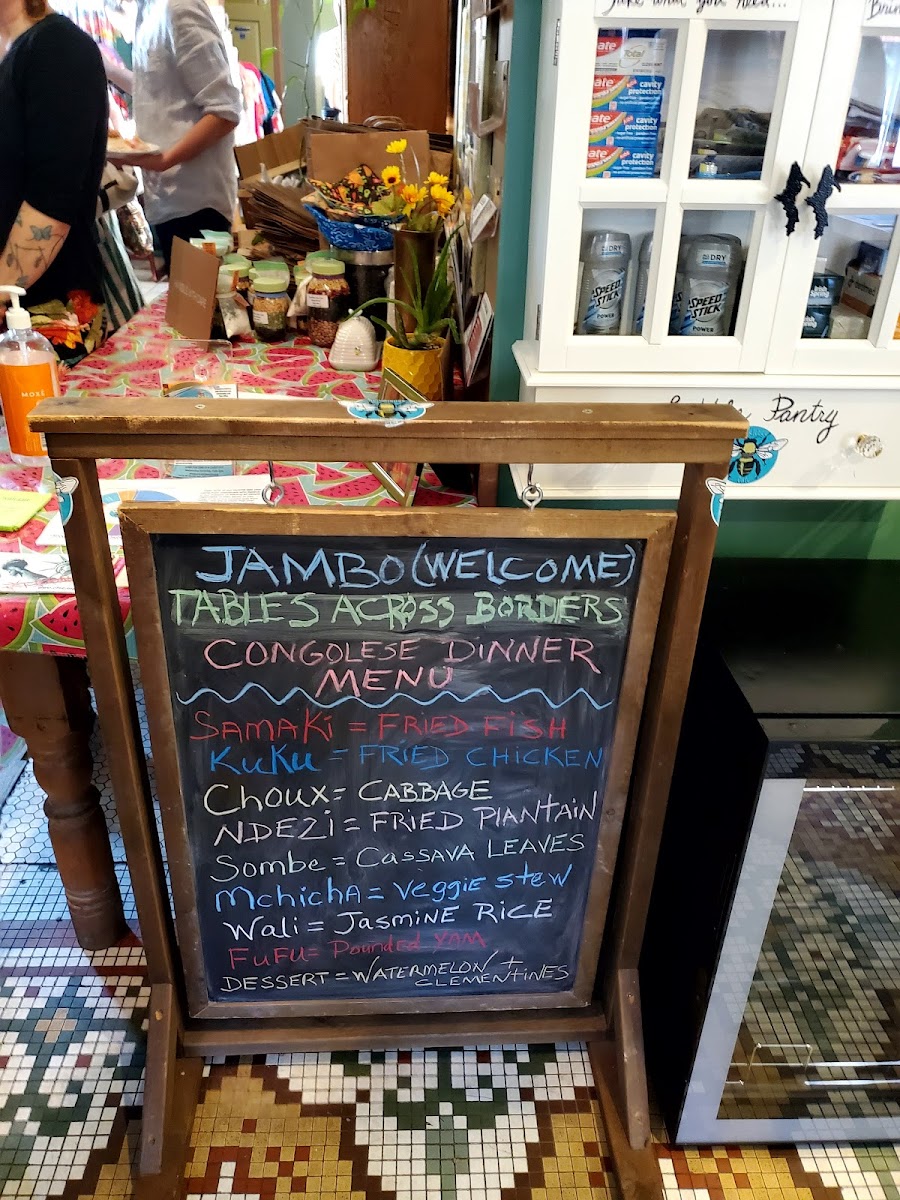 Take what you need...
Total
cavity
protection
cavity
protection
cavity
protection
DRY
SPEED
STICK
POWER
DRY
SPEED
STICK
POWER
Irish
Spring
Pantry
JAMBO (WELCOME)
TABLES ACROSS BORDERS
CONGOLESE DINNER
MENU
SAMAKI = FRIED FISH
KUKU = FRIED CHICKEN
CHOUX = CABBAGE
NDEZI = FRIED PLANTAIN
SOMBE = CASSAVA LEAVES
MCHICHA = VEGGIE STEW
WALI = JASMINE RICE
FUFU = POUNDED YAM
DESSERT = WATERMELON +
CLEMENTINES